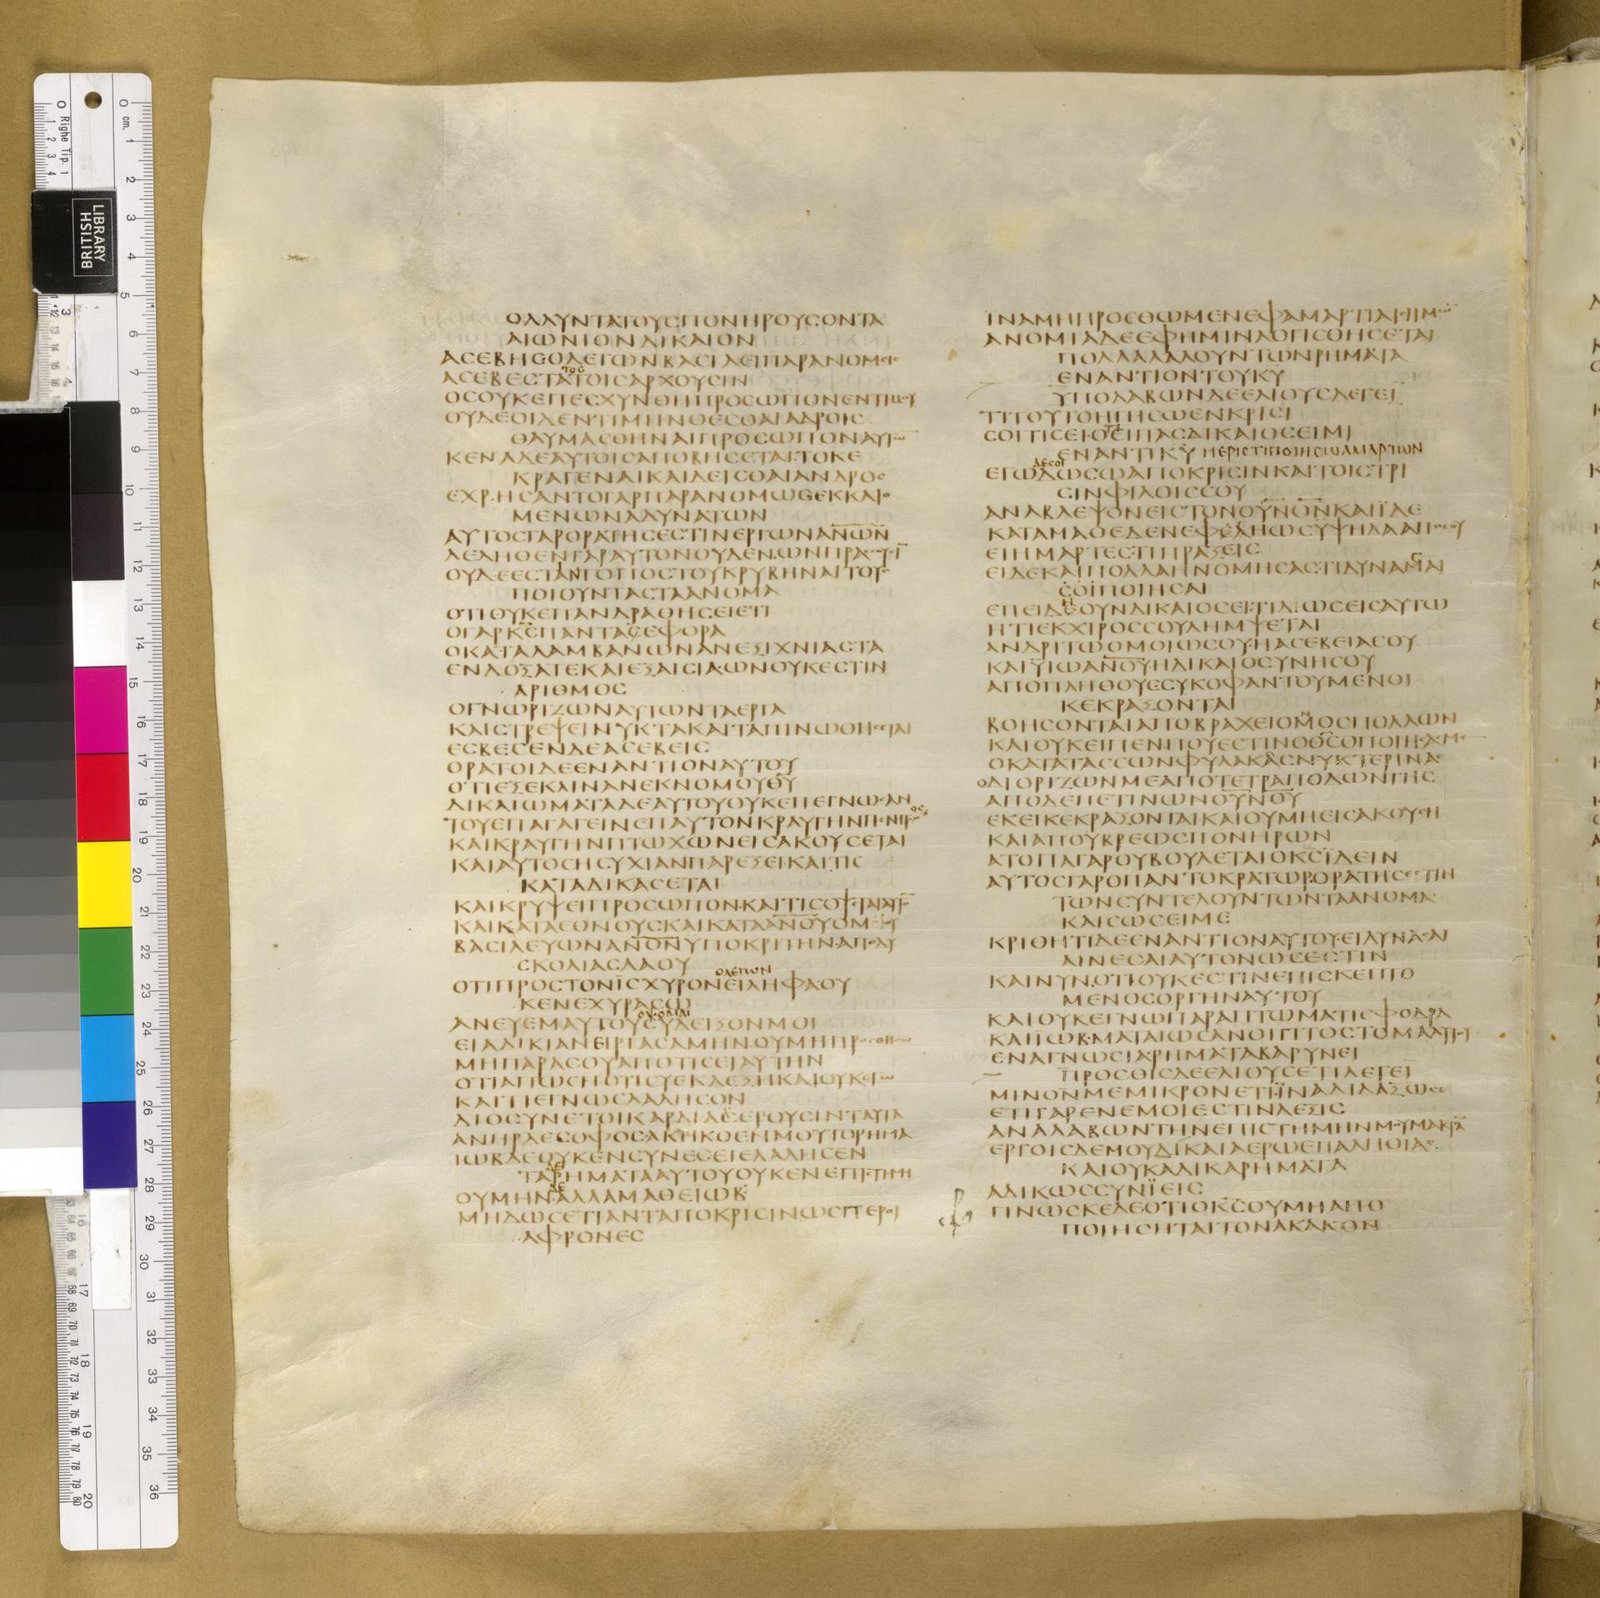 ΟΛΛΥΝΤΑΤΟΥΣΠΟΝΗΡΟΥΣΟΝΤΑ
ΑΙΩΝΙΟΝΔΙΚΑΙΟΝ
ΑΣΕΒΗΣΟΛΕΓΩΝΒΑΣΙΛΕΙΠΑΡΑΝΟΜΕΙΣ
ΑΣΕΒΕΣΤΑΤΟΙΣΑΡΧΟΥΣΙΝ
ΟΣΟΥΚΕΠΕΣΧΥΝΘΗΠΡΟΣΩΠΟΝΕΝΤΙΜΟΥ
ΟΥΔΕΟΙΔΕΝΤΙΜΗΝΘΕΣΘΑΙΑΔΡΟΙΣ
ΘΑΥΜΑΣΘΗΝΑΙΠΡΟΣΩΠΟΝΑΥΤΩΝ
ΚΕΝΑΔΕΑΥΤΟΙΣΑΠΟΒΗΣΕΤΑΙΤΟΚΕ
ΚΡΑΓΕΝΑΙΚΑΙΔΕΙΣΘΑΙΑΝΔΡΟΣ
ΕΧΡΗΣΑΝΤΟΓΑΡΠΑΡΑΝΟΜΩΣΕΚΚΛΙ
ΜΕΝΩΝΑΔΥΝΑΤΩΝ
ΑΥΤΟΣΓΑΡΟΡΑΤΗΣΕΣΤΙΝΕΡΓΩΝΑΝΩΝ
ΛΕΛΗΘΕΝΓΑΡΑΥΤΟΝΟΥΔΕΝΩΝΠΡΑΣΣΙ
ΟΥΔΕΕΣΤΑΙΤΟΠΟΣΤΟΥΚΡΥΒΗΝΑΙΤΟΥΣ
ΠΟΙΟΥΝΤΑΣΤΑΑΝΟΜΑ
ΟΤΙΟΥΚΕΠΑΝΔΡΑΘΗΣΕΙΕΤΙ
ΟΓΑΡΚΣΠΑΝΤΑΣΕΦΟΡΑ
ΟΚΑΤΑΛΑΜΒΑΝΩΝΑΝΕΞΙΧΝΙΑΣΤΑ
ΕΝΔΟΞΑΤΕΚΑΙΕΞΑΙΣΙΑΩΝΟΥΚΕΣΤΙΝ
ΑΡΙΘΜΟΣ
ΟΓΝΩΡΙΖΩΝΑΥΤΩΝΤΑΕΡΓΑ
ΚΑΙΣΤΡΕΨΕΙΝΥΚΤΑΚΑΙΤΑΠΙΝΩΘΗΣΟΝΤΑΙ
ΕΣΒΕΣΕΝΔΕΑΣΕΒΕΙΣ
ΟΡΑΤΟΙΔΕΕΝΑΝΤΙΟΝΑΥΤΟΥ
ΟΤΙΕΞΕΚΛΙΝΑΝΕΚΝΟΜΟΥΘΥ
ΔΙΚΑΙΩΜΑΤΑΔΕΑΥΤΟΥΟΥΚΕΠΕΓΝΩΣΑΝ
ΤΟΥΕΠΑΓΑΓΕΙΝΕΠΑΥΤΟΝΚΡΑΥΓΗΝΠΕΝΗΤΟΣ
ΚΑΙΚΡΑΥΓΗΝΠΤΩΧΩΝΕΙΣΑΚΟΥΣΕΤΑΙ
ΚΑΙΑΥΤΟΣΗΣΥΧΙΑΝΠΑΡΕΞΕΙΚΑΙΤΙΣ
ΚΑΤΑΔΙΚΑΣΕΤΑΙ
ΚΑΙΚΡΥΨΕΙΠΡΟΣΩΠΟΝΚΑΙΤΙΣΟΨΕΤΑΙΑΥΤΟΝ
ΚΑΙΚΑΤΑΕΘΝΟΥΣΚΑΙΚΑΤΑΑΝΟΥΟΜΟΥ
ΒΑΣΙΛΕΥΩΝΑΝΟΝΥΠΟΚΡΙΤΗΝΑΠΟΔΥ
ΣΚΟΛΙΑΣΛΑΟΥ
ΟΤΙΠΡΟΣΤΟΝΙΣΧΥΡΟΝΕΙΛΗΦΑΟΥ
ΚΕΝΕΧΥΡΑΣΩ
ΑΝΕΥΕΜΑΥΤΟΥΣΥΔΕΙΞΟΝΜΟΙ
ΕΙΑΔΙΚΙΑΝΕΙΡΓΑΣΑΜΗΝΟΥΜΗΠΡΟΣΘΗΣΩ
ΜΗΠΑΡΑΣΟΥΑΠΟΤΙΣΕΙΑΥΤΗΝ
ΟΤΙΑΠΩΣΗΟΤΙΣΥΕΚΛΕΞΗΚΑΙΟΥΚΕΓΩ
ΚΑΙΤΙΕΓΝΩΣΛΑΛΗΣΟΝ
ΔΙΟΣΥΝΕΤΟΙΚΑΡΔΙΑΣΕΡΟΥΣΙΝΤΑΥΤΑ
ΑΝΗΡΔΕΣΟΦΟΣΑΚΗΚΟΕΝΜΟΥΤΟΡΗΜΑ
ΙΩΒΔΕΟΥΚΕΝΣΥΝΕΣΕΙΕΛΑΛΗΣΕΝ
ΤΑΡΗΜΑΤΑΑΥΤΟΥΟΥΚΕΝΕΠΙΣΤΗΜΗ
ΟΥΜΗΝΑΛΛΑΜΑΘΕΙΩΒ
ΜΗΔΩΣΕΤΙΑΝΤΑΠΟΚΡΙΣΙΝΩΣΠΕΡΟΙ
ΑΦΡΟΝΕΣ
ΙΝΑΜΗΠΡΟΣΘΩΜΕΝΕΦΑΜΑΡΤΙΑΙΣΗΜΩΝ
ΑΝΟΜΙΑΔΕΕΦΗΜΙΝΛΟΓΙΣΘΗΣΕΤΑΙ
ΠΟΛΛΑΛΑΛΟΥΝΤΩΝΡΗΜΑΤΑ
ΕΝΑΝΤΙΟΝΤΟΥΚΥ
ΥΠΟΛΑΒΩΝΔΕΕΛΙΟΥΣΛΕΓΕΙ
ΤΙΤΟΥΤΟΗΓΗΣΩΕΝΚΡΙΣΙ
ΣΟΙΤΙΣΕΙΟΤΙΕΙΠΑΣΔΙΚΑΙΟΣΕΙΜΙ
ΕΝΑΝΤΙΚΥ ΗΕΡΙΣΤΙΠΟΙΗΣΩΑΜΑΡΤΩΝ
ΕΓΩΔΩΣΩΑΠΟΚΡΙΣΙΝΚΑΙΤΟΙΣΤΡΙ
ΣΙΝΦΙΛΟΙΣΣΟΥ
ΑΝΑΒΛΕΨΟΝΕΙΣΤΟΝΟΥΝΟΝΚΑΙΪΔΕ
ΚΑΤΑΜΑΘΕΔΕΝΕΦΗΩΣΥΨΗΛΑΑΠΟΣΟΥ
ΕΙΗΜΑΡΤΕΣΤΙΠΡΑΞΕΙΣ
ΕΙΔΕΚΑΙΠΟΛΛΑΗΝΟΜΗΣΑΣΤΙΔΥΝΑΣΑΙ
ΣΟΙΠΟΙΗΣΑΙ
ΕΠΕΙΔΕΟΥΝΔΙΚΑΙΟΣΕΙΤΙΔΩΣΕΙΣΑΥΤΩ
ΗΤΙΕΚΧΙΡΟΣΣΟΥΛΗΜΨΕΤΑΙ
ΑΝΔΡΙΤΩΟΜΟΙΩΣΟΥΗΑΣΕΒΕΙΑΣΟΥ
ΚΑΙΫΙΩΑΝΟΥΗΔΙΚΑΙΟΣΥΝΗΣΟΥ
ΑΠΟΠΛΗΘΟΥΣΣΥΚΟΦΑΝΤΟΥΜΕΝΟΙ
ΚΕΚΡΑΞΟΝΤΑΙ
ΒΟΗΣΟΝΤΑΙΑΠΟΒΡΑΧΕΙΟΝΟΣΠΟΛΛΩΝ
ΚΑΙΟΥΚΕΙΠΕΝΠΟΥΕΣΤΙΝΟΘΣΟΠΟΙΗΣΑΣΜΕ
ΟΚΑΤΑΤΑΣΣΩΝΦΥΛΑΚΑΣΝΥΚΤΕΡΙΝΑΣ
ΟΔΙΟΡΙΖΩΝΜΕΑΠΟΤΕΤΡΑΠΟΔΩΝΓΗΣ
ΑΠΟΔΕΠΕΤΙΝΩΝΟΥΝΟΥ
ΕΚΕΙΚΕΚΡΑΞΟΝΤΑΙΚΑΙΟΥΜΗΕΙΣΑΚΟΥΣΗ
ΚΑΙΑΠΟΥΒΡΕΩΣΠΟΝΗΡΩΝ
ΑΤΟΠΑΓΑΡΟΥΒΟΥΛΕΤΑΙΟΚΣΪΔΕΙΝ
ΑΥΤΟΣΓΑΡΟΠΑΝΤΟΚΡΑΤΩΡΟΡΑΤΗΣΕΣΤΙΝ
ΤΩΝΣΥΝΤΕΛΟΥΝΤΩΝΤΑΑΝΟΜΑ
ΚΑΙΣΩΣΕΙΜΕ
ΚΡΙΘΗΤΙΔΕΕΝΑΝΤΙΟΝΑΥΤΟΥΕΙΔΥΝΑΣΑΙ
ΑΙΝΕΣΑΙΑΥΤΟΝΩΣΕΣΤΙΝ
ΚΑΙΝΥΝΟΤΙΟΥΚΕΣΤΙΝΕΠΙΣΚΕΠΤΟ
ΜΕΝΟΣΟΡΓΗΝΑΥΤΟΥ
ΚΑΙΟΥΚΕΓΝΩΠΑΡΑΠΤΩΜΑΤΙΣΦΟΔΡΑ
ΚΑΙΙΩΒΜΑΤΑΙΩΣΑΝΟΙΓΙΤΟΣΤΟΜΑΑΥΤΟΥ
ΕΝΑΓΝΩΣΙΑΡΗΜΑΤΑΒΑΡΥΝΕΙ
ΠΡΟΣΘΙΣΔΕΕΛΙΟΥΣΕΤΙΛΕΓΕΙ
ΜΙΝΟΝΜΕΜΙΚΡΟΝΕΤΙΪΝΑΔΙΔΑΞΩΣΕ
ΕΤΙΓΑΡΕΝΕΜΟΙΕΣΤΙΝΛΕΞΙΣ
ΑΝΑΛΑΒΩΝΤΗΝΕΠΙΣΤΗΜΗΝΜΟΥΜΑΚΡΑ
ΕΡΓΟΙΣΔΕΜΟΥΔΙΚΑΙΑΕΡΩΕΠΑΛΗΘΙΑΣ
ΚΑΙΟΥΚΑΔΙΚΑΡΗΜΑΤΑ
ΑΔΙΚΩΣΣΥΝΪΕΙΣ
ΓΙΝΩΣΚΕΔΕΟΤΙΟΚΣΟΥΜΗΑΠΟ
ΠΟΙΗΣΗΤΑΙΤΟΝΑΚΑΚΟΝ
LIBRARY
BRITISH